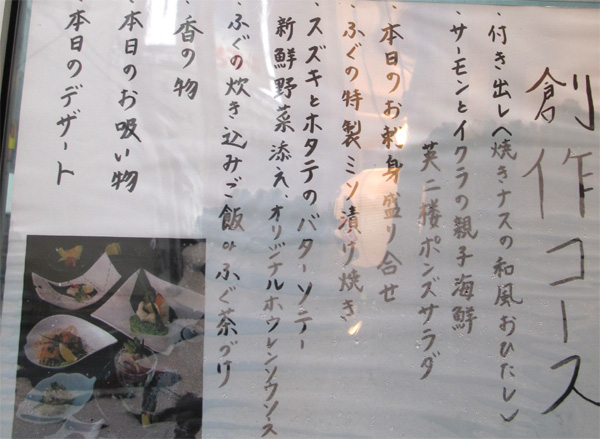 創作コース
・付き出し(焼きナスの和風おひたし)
・サーモンとイクラの親子海鮮
英二楼ポンズサラダ
・本日のお刺身盛り合せ
・ふぐの特製ミソ漬け焼き
・スズキとホタテのバターソテー
新鮮野菜添え、オリジナルホウレンソウソース
・ふぐの炊き込みご飯orふぐ茶づけ
・香の物
・本日のお吸い物
・本日のデザート